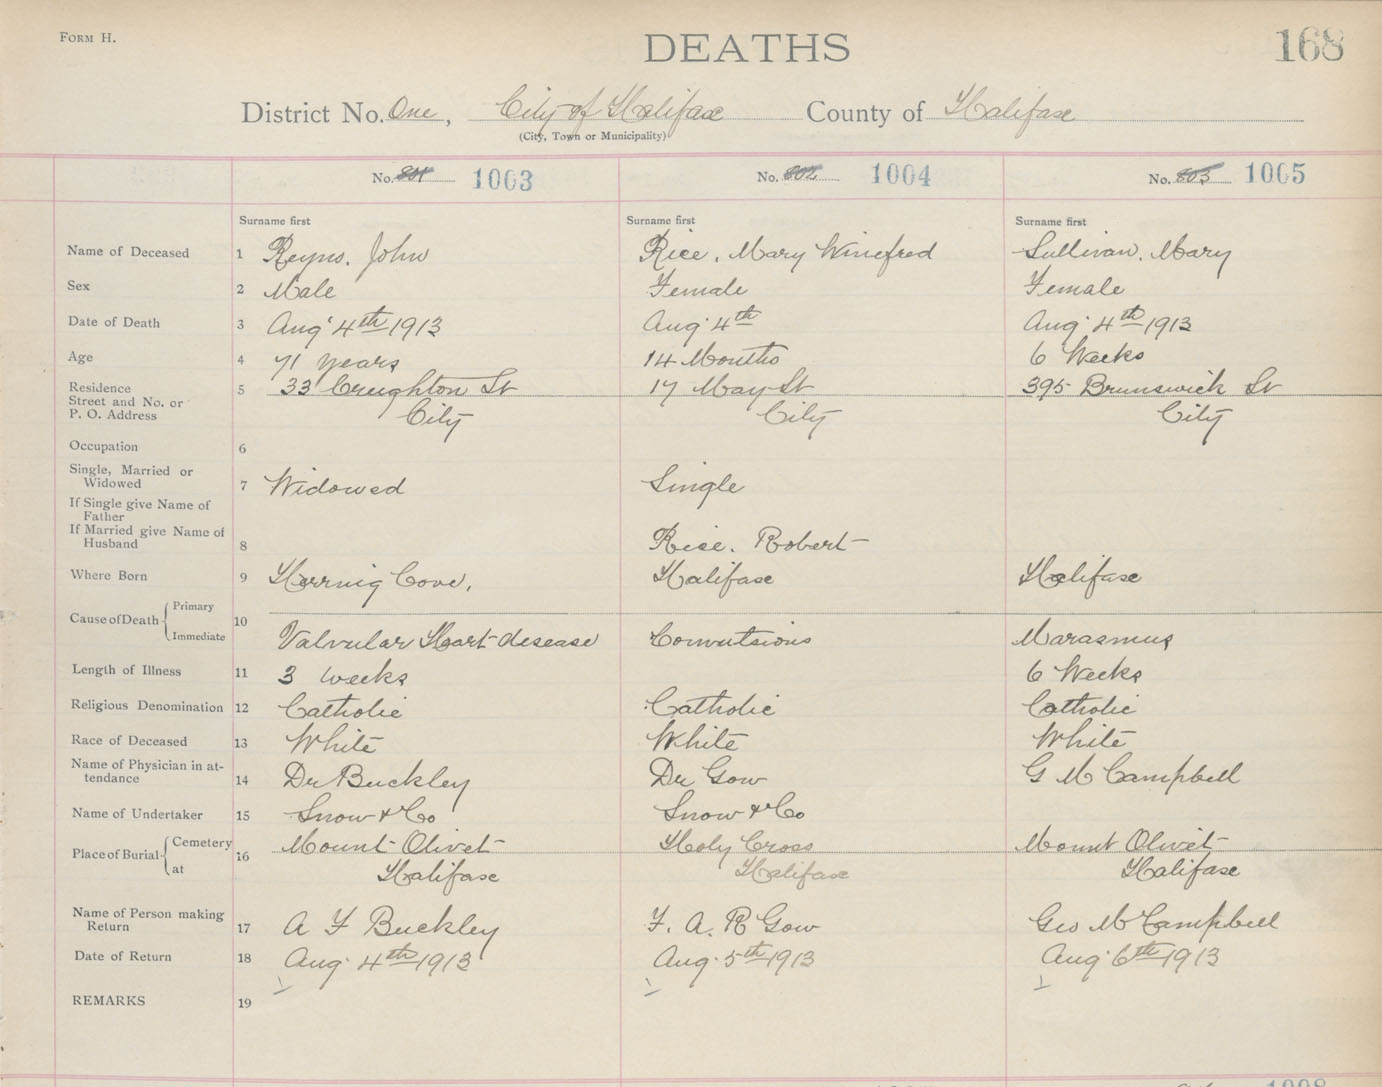 FORM H.
DEATHS
168
District No. One, City of Halifax County of Halifax
(City, Town or Municipality)
No. 801 1003 No. 802 1004 No. 803 1005
Surname first Surname first Surname first
Name of Deceased 1 Reyno. John Rice, Mary Winefred Sullivan. Mary
Sex 2 Male Female Female
Date of Death 3 Aug 4th 1913 Aug 4th Aug 4th 1913
Age 4 71 years 14 Months 6 Weeks
Residence
Street and No. or 5 33 Creighton St 17 May St 395 Brunswick St
P. O. Address City City City
Occupation 6
Single, Married or
Widowed 7 Widowed Single
If Single give Name of
Father
If Married give Name of
Husband 8 Rice. Robert
Where Born 9 Herring Cove, Halifax Halifax
Cause of Death Primary 10
Immediate Valvular Heart disease Convulsions Marasmus
Length of Illness 11 3 weeks 6 Weeks
Religious Denomination 12 Catholic Catholic Catholic
Race of Deceased 13 White White White
Name of Physician in at-
tendance 14 Dr Buckley Dr Gow G M Campbell
Name of Undertaker 15 Snow & Co Snow & Co
Place of Burial Cemetery 16 Mount Olivet Holy Cross Mount Olivet
at Halifax Halifax Halifax
Name of Person making
Return 17 A F Buckley F. A. R Gow Geo M Campbell
Date of Return 18 Aug 4th 1913 Aug 5th 1913 Aug 6th 1913
REMARKS 19